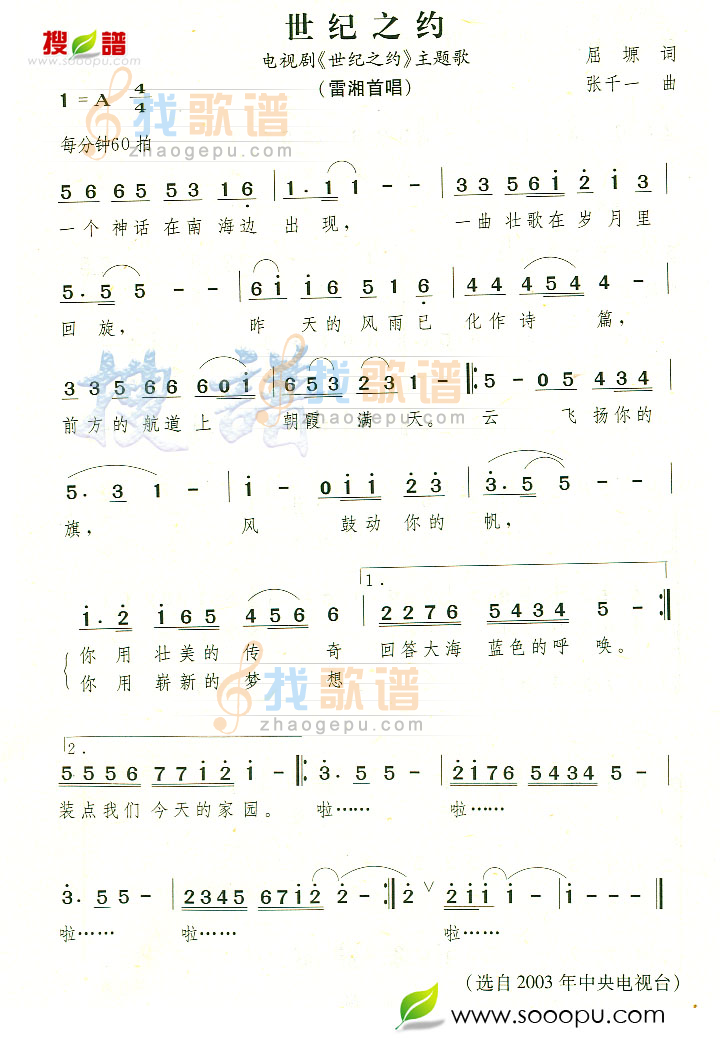 搜譜
www.sooopu.com
世纪之约
电视剧《世纪之约》主题歌
(雷湘首唱)
屈塬 词
张千一 曲
1 = A 4/4
每分钟60拍
找歌谱
zhaogepu.com
5 6 6 5 5 3 1 6 | 1 · 1 1 - - | 3 3 5 6 1 2 1 3 |
一个 神话 在南 海边 出 现， 一曲 壮歌在 岁 月里
5 · 5 5 - - | 6 1 1 6 5 1 6 | 4 4 4 5 4 4 |
回 旋， 昨 天的 风雨已 化作诗 篇，
找歌谱
zhaogepu.com
3 3 5 6 6 6 0 1 | 6 5 3 2 3 1 - ‖: 5 - 0 5 4 3 4 |
前方的 航道上 朝霞 满 天。 云 飞 扬你的
5 · 3 1 - | 1 - 0 1 1 2 3 | 3 · 5 5 - - |
旗， 风 鼓动 你的 帆，
1.
1 · 2 1 6 5 4 5 6 6 | 2 2 7 6 5 4 3 4 5 - :‖
你 用 壮美的 传 奇 回答大海 蓝色的呼 唤。
你 用 崭新的 梦 想
找歌谱
zhaogepu.com
2.
5 5 5 6 7 7 1 2 1 - :‖: 3 · 5 5 - | 2 1 7 6 5 4 3 4 5 - |
装点我们 今天的 家 园。 啦…… 啦……
3 · 5 5 - | 2 3 4 5 6 7 1 2 2 - :‖ 2 ∨ 2 1 1 1 - | 1 - ‖
啦…… 啦…… 啦……
(选自 2003 年中央电视台)
www.sooopu.com